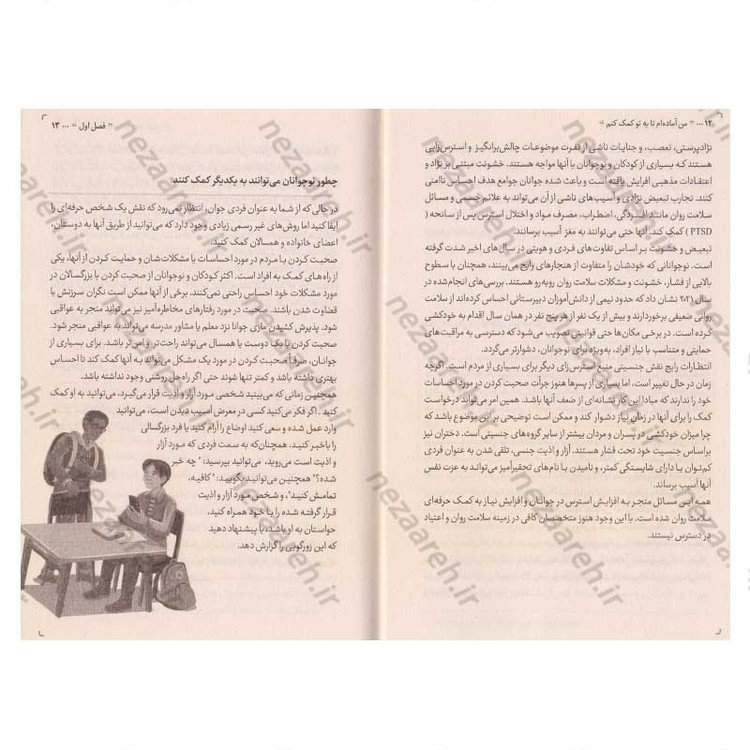 ۱۲ ... " من آماده‌ام تا به تو کمک کنم "
نژادپرستی، تعصب، و جنایات ناشی از نفرت موضوعات چالش‌برانگیز و استرس‌زایی
هستند که بسیاری از کودکان و نوجوانان با آنها مواجه هستند. خشونت مبتنی بر نژاد و
اعتقادات مذهبی افزایش یافته است و باعث شده جوانان جوامع هدف احساس ناامنی
کنند. تجارب تبعیض نژادی و آسیب‌های ناشی از آن می‌تواند به علائم جسمی و مسائل
سلامت روان مانند افسردگی، اضطراب، مصرف مواد و اختلال استرس پس از سانحه (
PTSD ) کمک کند. آنها حتی می‌توانند به مغز آسیب برسانند.
تبعیض و خشونت بر اساس تفاوت‌های فردی و هویتی در سال‌های اخیر شدت گرفته
است. نوجوانانی که خودشان را متفاوت از هنجارهای رایج می‌بینند، همچنان با سطوح
بالایی از فشار، خشونت و مشکلات سلامت روان روبه‌رو هستند. بررسی‌های انجام‌شده در
سال ۲۰۲۱ نشان داد که حدود نیمی از دانش‌آموزان دبیرستانی احساس کرده‌اند از سلامت
روانی ضعیفی برخوردارند و بیش از یک نفر از هر پنج نفر در همان سال اقدام به خودکشی
کرده است. در برخی مکان‌ها حتی قوانینی تصویب می‌شود که دسترسی به مراقبت‌های
حمایتی و متناسب با نیاز افراد، به‌ویژه برای نوجوانان، دشوارتر می‌گردد.
انتظارات رایج نقش جنسیتی منبع استرس‌زای دیگر برای بسیاری از مردم است. اگرچه
زمان در حال تغییر است، اما بسیاری از پسرها هنوز جرأت صحبت کردن در مورد احساسات
خود را ندارند که مبادا این کار نشانه‌ای از ضعف آنها باشد. همین امر می‌تواند درخواست
کمک را برای آنها در زمان نیاز دشوار کند و ممکن است توضیحی بر این موضوع باشد که
چرا میزان خودکشی در پسران و مردان بیشتر از سایر گروه‌های جنسیتی است. دختران نیز
براساس جنسیت خود تحت فشار هستند. آزار و اذیت جنسی، تلقی شدن به عنوان فردی
کم‌توان یا دارای شایستگی کمتر، و نامیدن با نام‌های تحقیرآمیز می‌تواند به عزت نفس
آنها آسیب برساند.
همه این مسائل منجر به افزایش استرس در جوانان و افزایش نیاز به کمک حرفه‌ای
سلامت روان شده است. با این وجود هنوز متخصصان کافی در زمینه سلامت روان و اعتیاد
در دسترس نیستند.
" فصل اول " ... ۱۳
چطور نوجوانان می‌توانند به یکدیگر کمک کنند
در حالی که از شما به عنوان فردی جوان، انتظار نمی‌رود که نقش یک شخص حرفه‌ای را
ایفا کنید اما روش‌های غیر رسمی زیادی وجود دارد که می‌توانید از طریق آنها به دوستان،
اعضای خانواده و همسالان کمک کنید.
صحبت کردن با مردم در مورد احساسات یا مشکلات‌شان و حمایت کردن از آنها، یکی
از راه‌های کمک به افراد است. اکثر کودکان و نوجوانان از صحبت کردن با بزرگسالان در
مورد مشکلات خود احساس راحتی نمی‌کنند. برخی از آنها ممکن است نگران سرزنش یا
قضاوت شدن باشند. صحبت در مورد رفتارهای مخاطره‌آمیز نیز می‌تواند منجر به عواقبی
شود. پذیرش کشیدن ماری جوانا نزد معلم یا مشاور مدرسه می‌تواند به عواقبی منجر شود.
صحبت کردن با یک دوست یا همسال می‌تواند راحت‌تر و امن‌تر باشد. برای بسیاری از
جوانان، صرفاً صحبت کردن در مورد یک مشکل می‌تواند به آنها کمک کند تا احساس
بهتری داشته باشد و کمتر تنها شوند حتی اگر راه‌حل روشنی وجود نداشته باشد.
همچنین زمانی که می‌بینید شخصی مورد آزار و اذیت قرار می‌گیرد، می‌توانید به او کمک
کنید. اگر فکر می‌کنید کسی در معرض آسیب دیدن است، می‌توانید
وارد عمل شده و سعی کنید اوضاع را آرام کنید یا فرد بزرگسالی
را باخبر کنید. همچنان‌که به سمت فردی که مورد آزار
و اذیت است می‌روید، می‌توانید بپرسید: " چه خبر
شده؟" همچنین می‌توانید بگویید: " کافیه،
تمامش کنید"، و شخص مورد آزار و اذیت
قرار گرفته شده را با خود همراه کنید،
حواستان به او باشد، یا پیشنهاد دهید
که این زورگویی را گزارش دهد.
nezaareh.ir